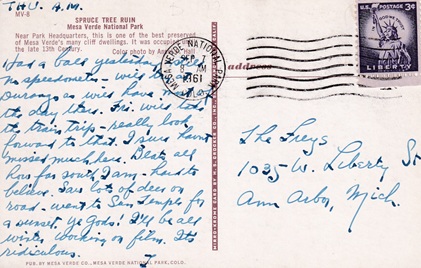 THU. A.M.
MV-6
SPRUCE TREE RUIN
Mesa Verde National Park
Near Park Headquarters, this is one of the best preserved
of Mesa Verde's many cliff dwellings. It was occupied
the late 13th Century.
Color photo by Hall
Had a bad yesterday
no speedometer - will be at
Durango as will have most of
the day there. Fri. will take
the train trip - really look
forward to that. I sure haven't
missed much here. Beats all
how far south I am - hard to
believe. Saw lots of deer on
road - went to Sun Temple for
a sunset. Ye Gods! I'll be all
winter working on film. Its
ridiculous.
PUB. BY MESA VERDE CO., MESA VERDE NATIONAL PARK, COLO.
MESA VERDE NATIONAL PARK
SEP
AM
1961
address
U.S. POSTAGE 3¢
LIBERTY
The Freys
1035 W. Liberty St
Ann Arbor, Mich.